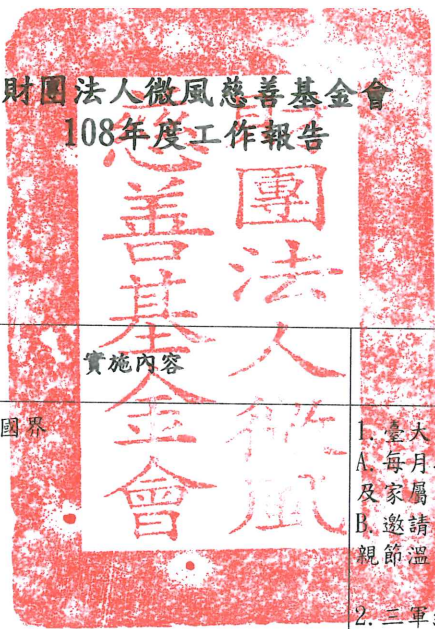 財團法人微風慈善基金會
108年度工作報告
財團法人微風
慈善基金會
實施內容
國界
1. 臺大
A. 每月
及家屬
B. 邀請
親節溫
2. 三軍